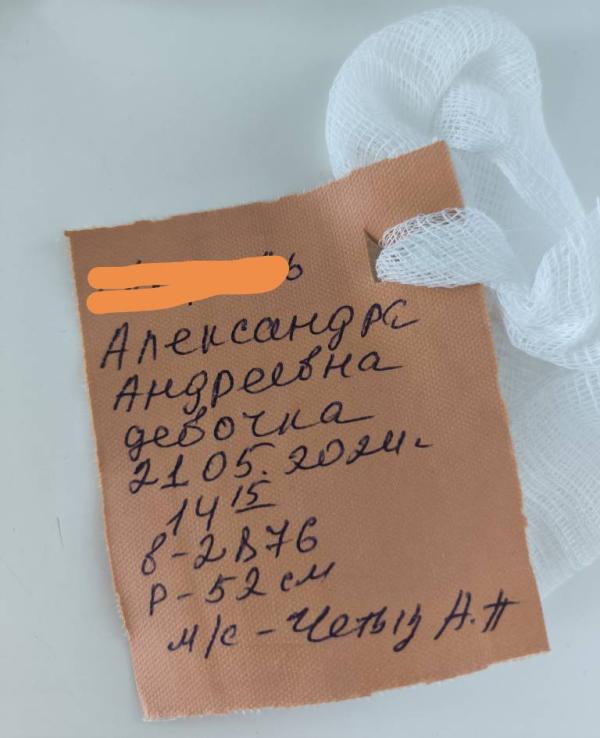 Александра
Андреевна
девочка
21.05.2024г
14 15
в-2876
р-52 см
м/с - А.П